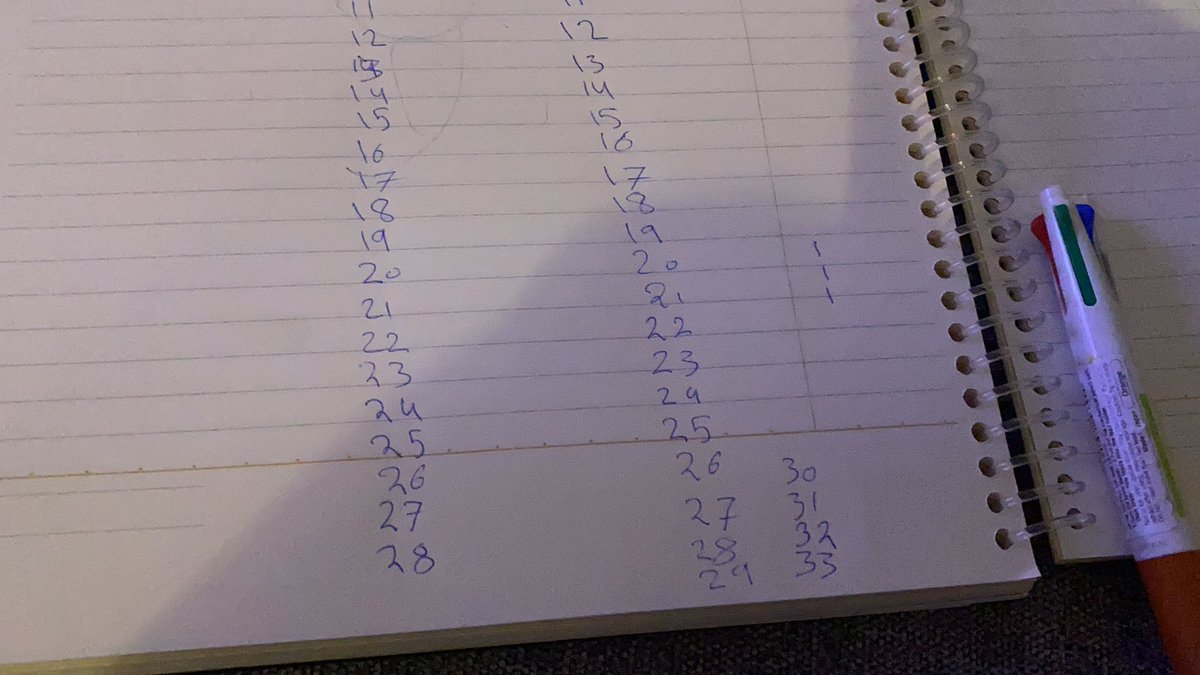 11 11
12 12
13 13
14 14
15 15
16 16
17 17
18 18
19 19
20 20 1
21 21 1
22 22 1
23 23
24 24
25 25
26 26 30
27 27 31
28 28 32
29 33
Orange